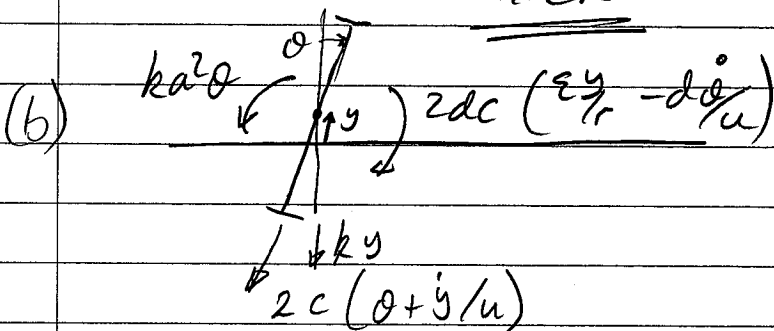 θ
ka²θ
(b) y 2dc (εy/r - dθ̇/u)
ky
2c (θ + ẏ/u)